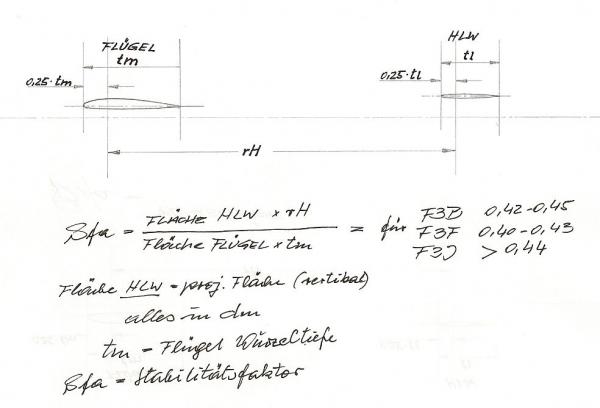 FLÜGEL
tm
0,25·tm
HLW
tl
0,25·tl
rH
Sfa = FLÄCHE HLW x rH / Fläche FLÜGEL x tm = für F3B 0,42-0,45
F3F 0,40-0,43
F3J > 0,44
Fläche HLW = proj. Fläche (vertikal)
alles in dm
tm = Flügel Wurzeltiefe
Sfa = Stabilitätsfaktor